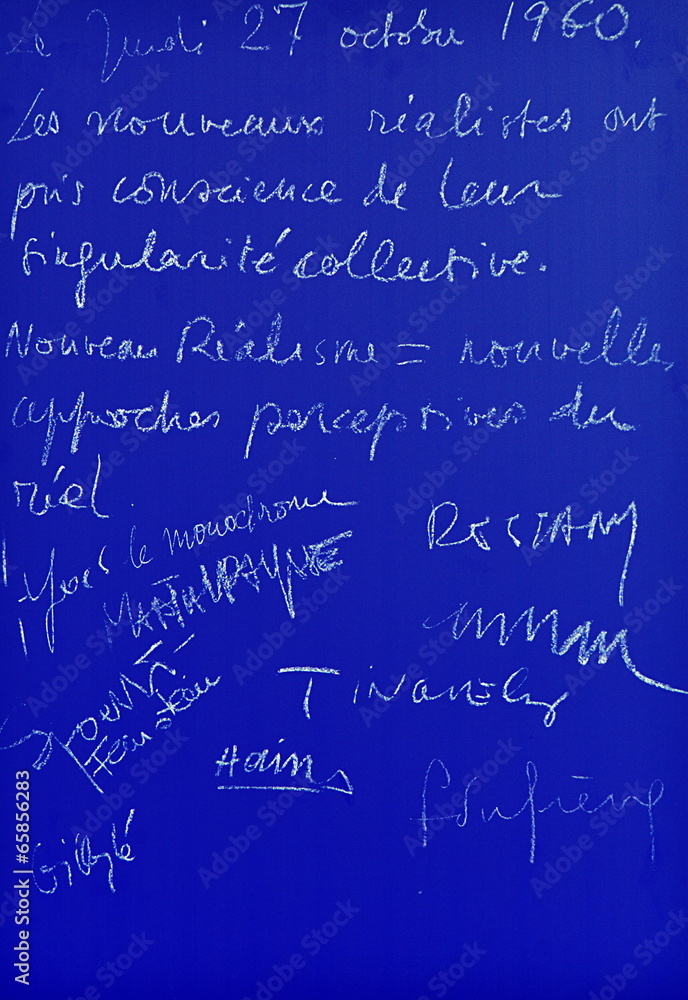 Le Jeudi 27 octobre 1960.
Les nouveaux réalistes ont
pris conscience de leur
singularité collective.
Nouveau Réalisme = nouvelles
approches perceptives du
réel.
Yves le monochrome
RESTANY
MARTIAL RAYSSE
Arman
TINGUELY
Spoerri
Hains
dufrêne
Villeglé
Adobe Stock | #65856283